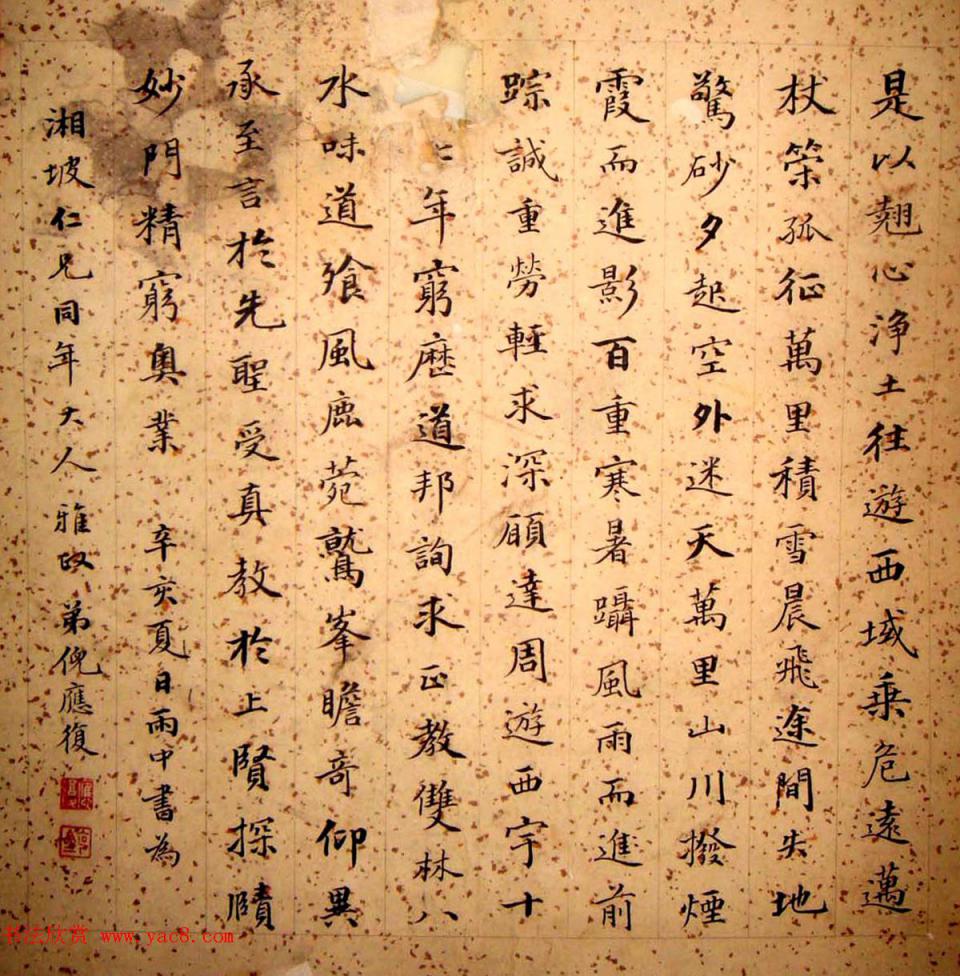 是以翹心浄土往遊西域乗危遠邁
杖策孤征萬里積雪晨飛途間失地
驚砂夕起空外迷天萬里山川撥煙
霞而進影百重寒暑躡風雨而進前
踪誠重勞輕求深願達周遊西宇十
七年窮歷道邦詢求正教雙林八
水味道飱風鹿菀鷲峯瞻奇仰異
承至言於先聖受真教於上賢探賾
妙門精窮奧業 辛亥夏日雨中書為
湘坡仁兄同年大人雅政弟倪應復
书法欣赏 www.yac8.com